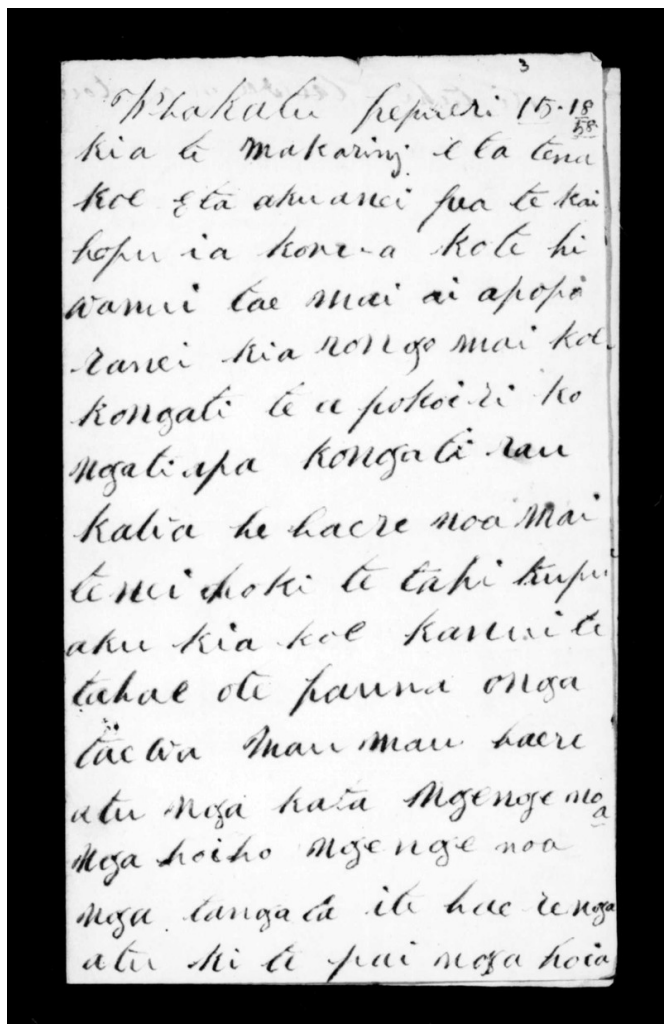 3
Whakatu pepueri 15. 18
58
kia te Makarini E ta tena
koe E ta akuanei pea te kai
hopu ia korua kote hi
wanui tae mai ai apopo
ranei kia rongo mai koe
kongati te a pokoiri ko
ngati apa kongati rau
katia he haere noa mai
tenei hoki te tahi kupu
aku kia koe kanui te
tahae ote pauna onga
taewa mau mau haere
atu nga kata Ngenge noa
nga hoiho Ngenge noa
nga tangata ite hae renga
atu ki te pai nga hoia